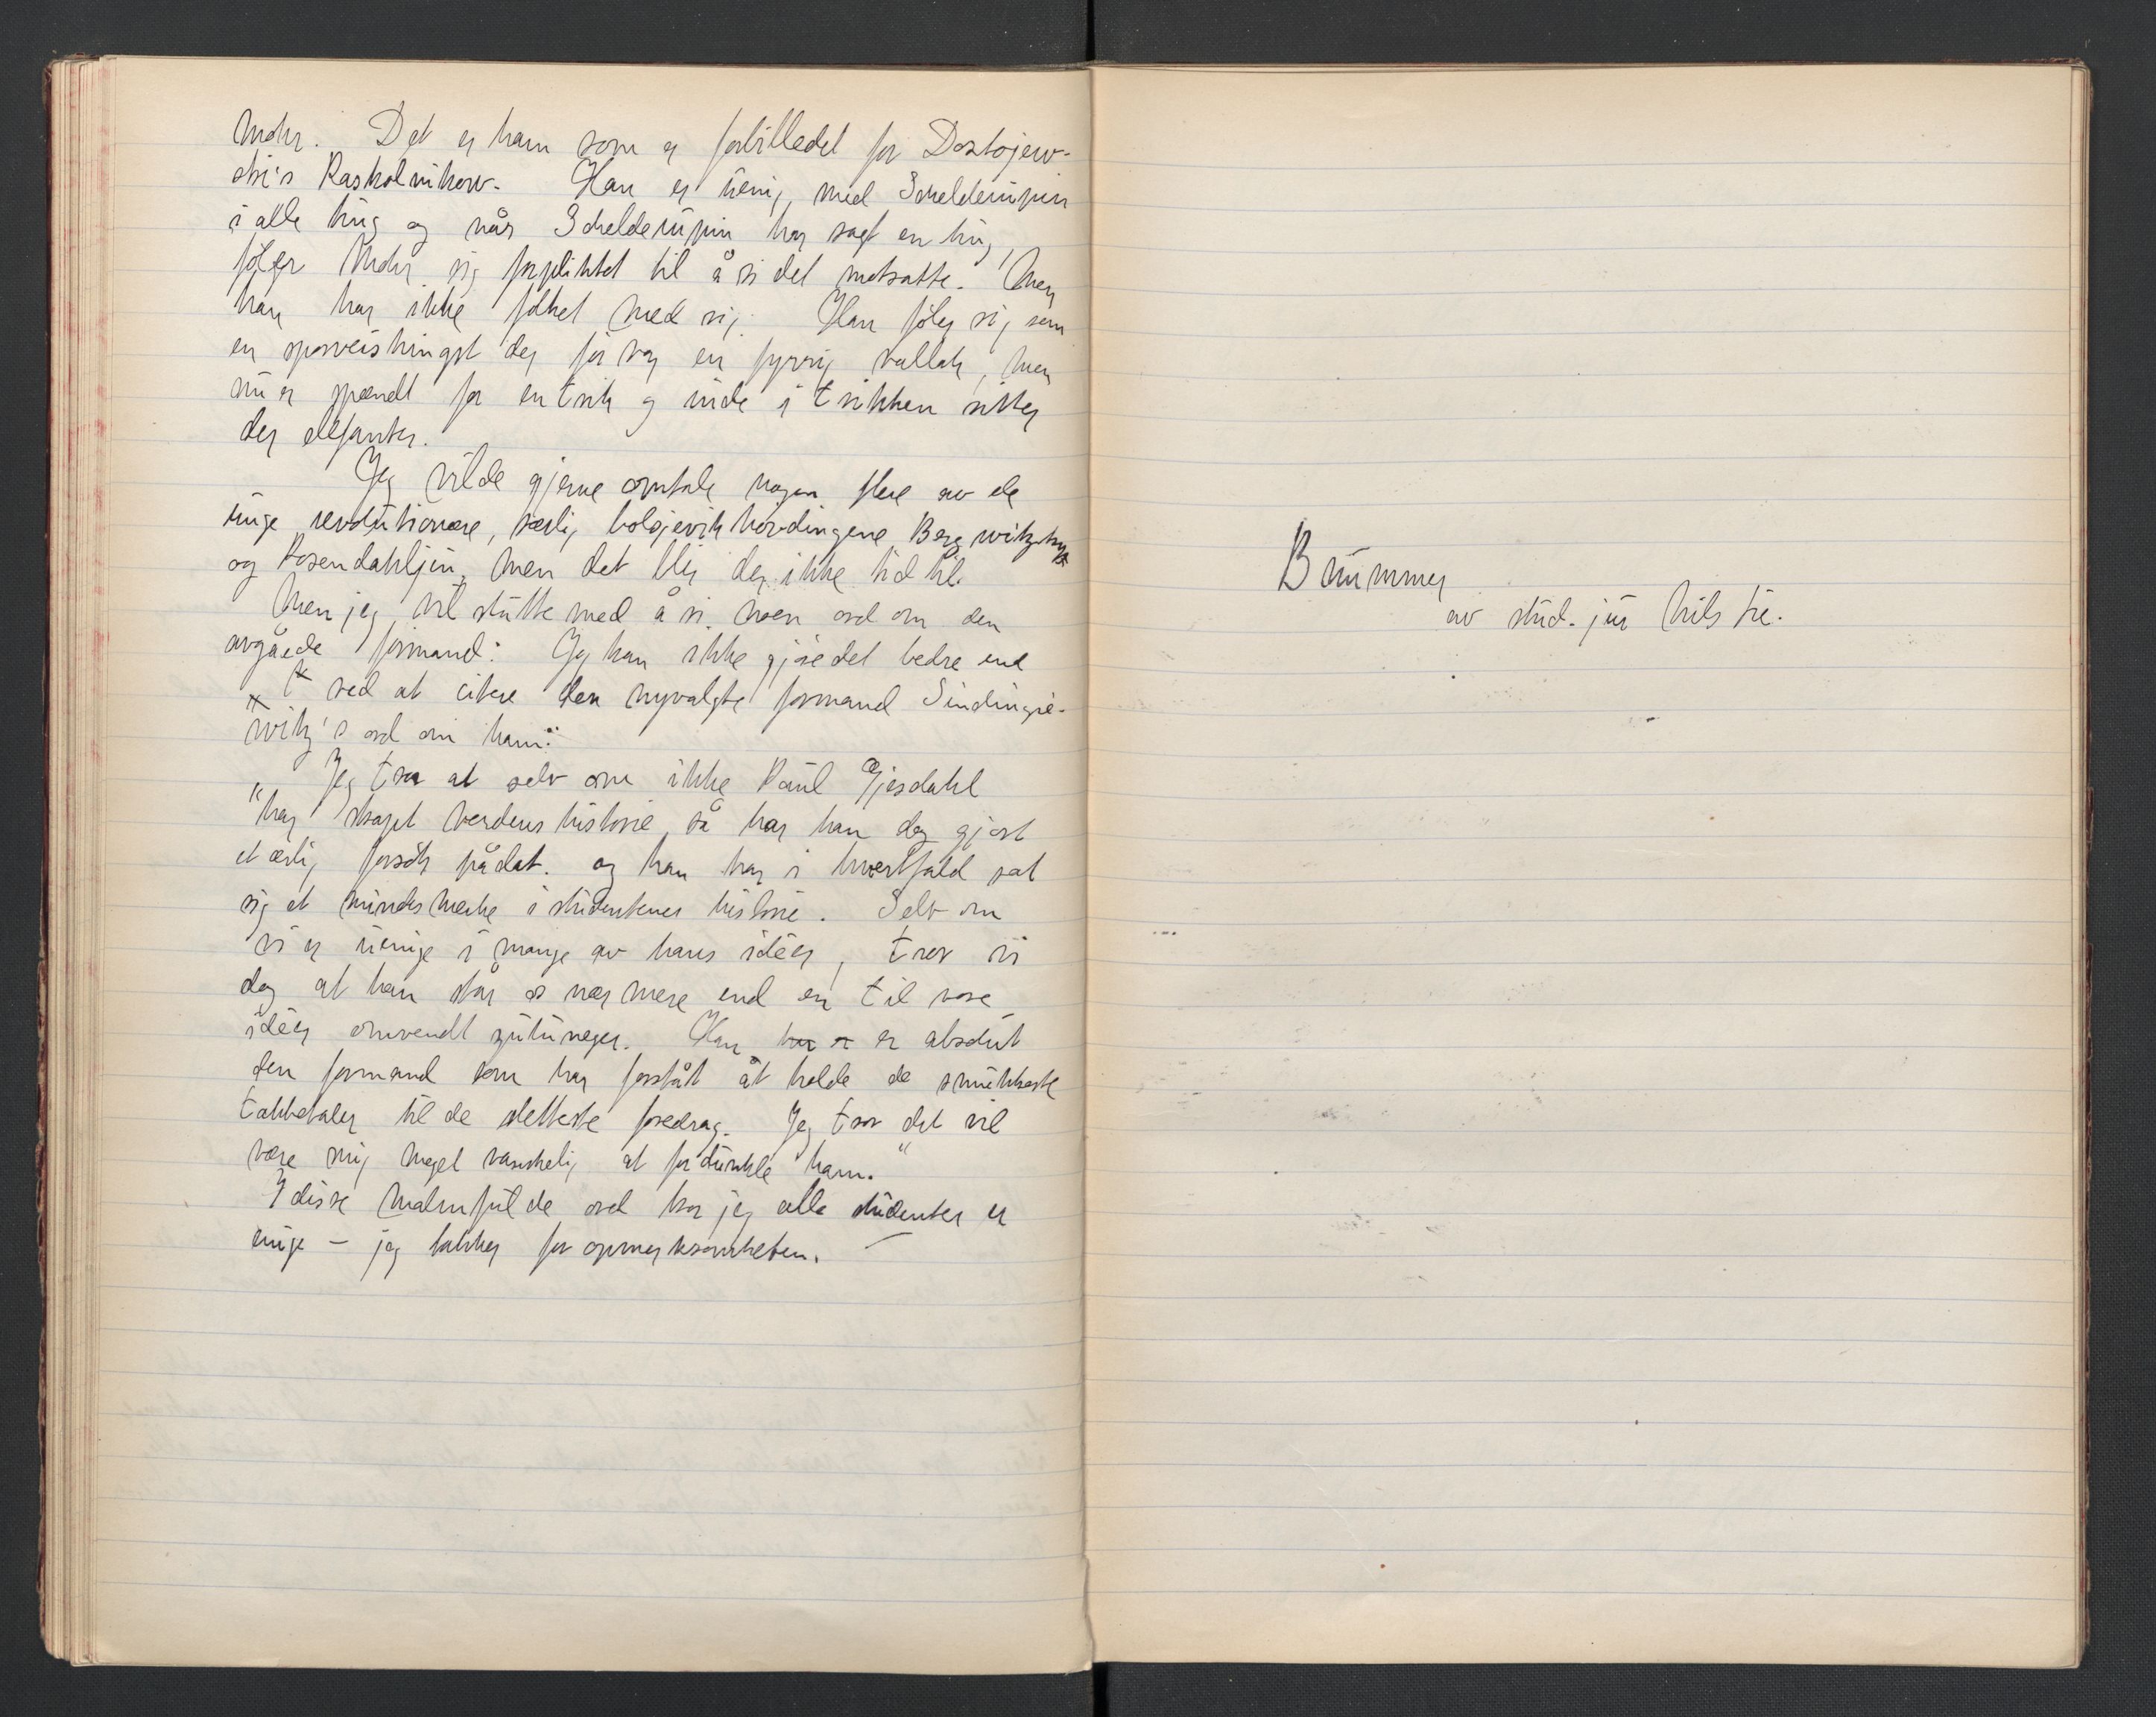 Mohr. Det er ham som er forbilledet for Dostojew-
ski's Raskolnikow. Han er uenig med Schelderupin
i alle ting og når Schelderupin har sagt en ting,
føler Mohr sig forpliktet til å si det motsatte. Men
han har ikke folket med sig. Han føler sig som
en sporveishingst der før var en fyrrig vallak, men
nu er spændt for en trik og inde i trikken sitter
der elefanter.
Jeg vilde gjerne omtale nogen flere av de
unge revolutionære, særlig bolsjevikhøvdingene Berg
og Rosendahljin, men det blir der ikke tid til.
Men jeg vil slutte med å si noen ord om den
avgåede formand: Jeg kan ikke gjøre det bedre end
ved at citere den nyvalgte formand Sindingie-
witz's ord om ham:
"Jeg tror at selv om ikke Paul Gjesdahl
har skapt verdenshistorie, så har han dog gjort
et ærlig forsøk på det. og han har i hvertfald sat
sig et mindesmerke i studentenes historie. Selv om
vi er uenige i mange av hans idéer, tror vi
dog at han står os nærmere end en til vore
idéer omvendt zuluneger. Han har er er absolut
den formand som har forstått at holde de smukkeste
takketaler til de sletteste foredrag. Jeg tror det vil
være mig meget vanskelig at fordunkle ham."
I disse malmfulde ord tror jeg alle studenter er
enige – jeg takker for opmerksomheten. –
Brummer
av stud. jur Nils Lie.